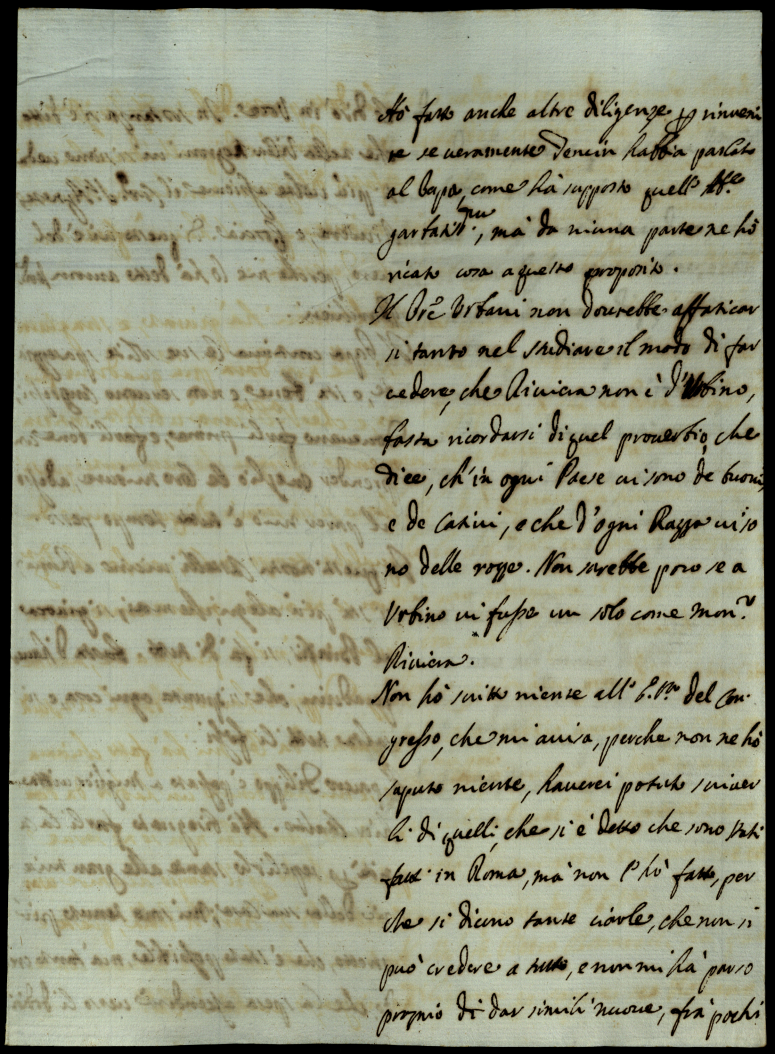 Hò fatto anche altre diligenze p rinveni
re se veramente Tencin habbia parlato
al Papa, come hà supposto quell' Ab.e
garbatis.mo, mà da niuna parte ne hò
ricavato cosa a questo proposito.
Il Pre Urbani non dovrebbe affaticar
si tanto nel studiare il modo di far
vedere, che Riviera non è d'Urbino,
basta ricordarsi di quel proverbio, che
dice, ch' in ogni Paese vi sono de buoni,
e de Cativi, e che d'ogni Razza vi so
no delle rozze. Non sarebbe poco se a
Urbino vi fusse un solo come Mon.r
Riviera.
Non hò scritto niente all' del Con-
gresso, che mi avisa, perche non ne hò
saputo niente, haverei potuto scriver
li di quelli, che si è detto che sono stati
fatti in Roma, mà non l'hò fatto, per
che si dicono tante ciarle, che non si
può credere a tutto, e non mi hà parso
proprio di dar simili nuove, frà pochi